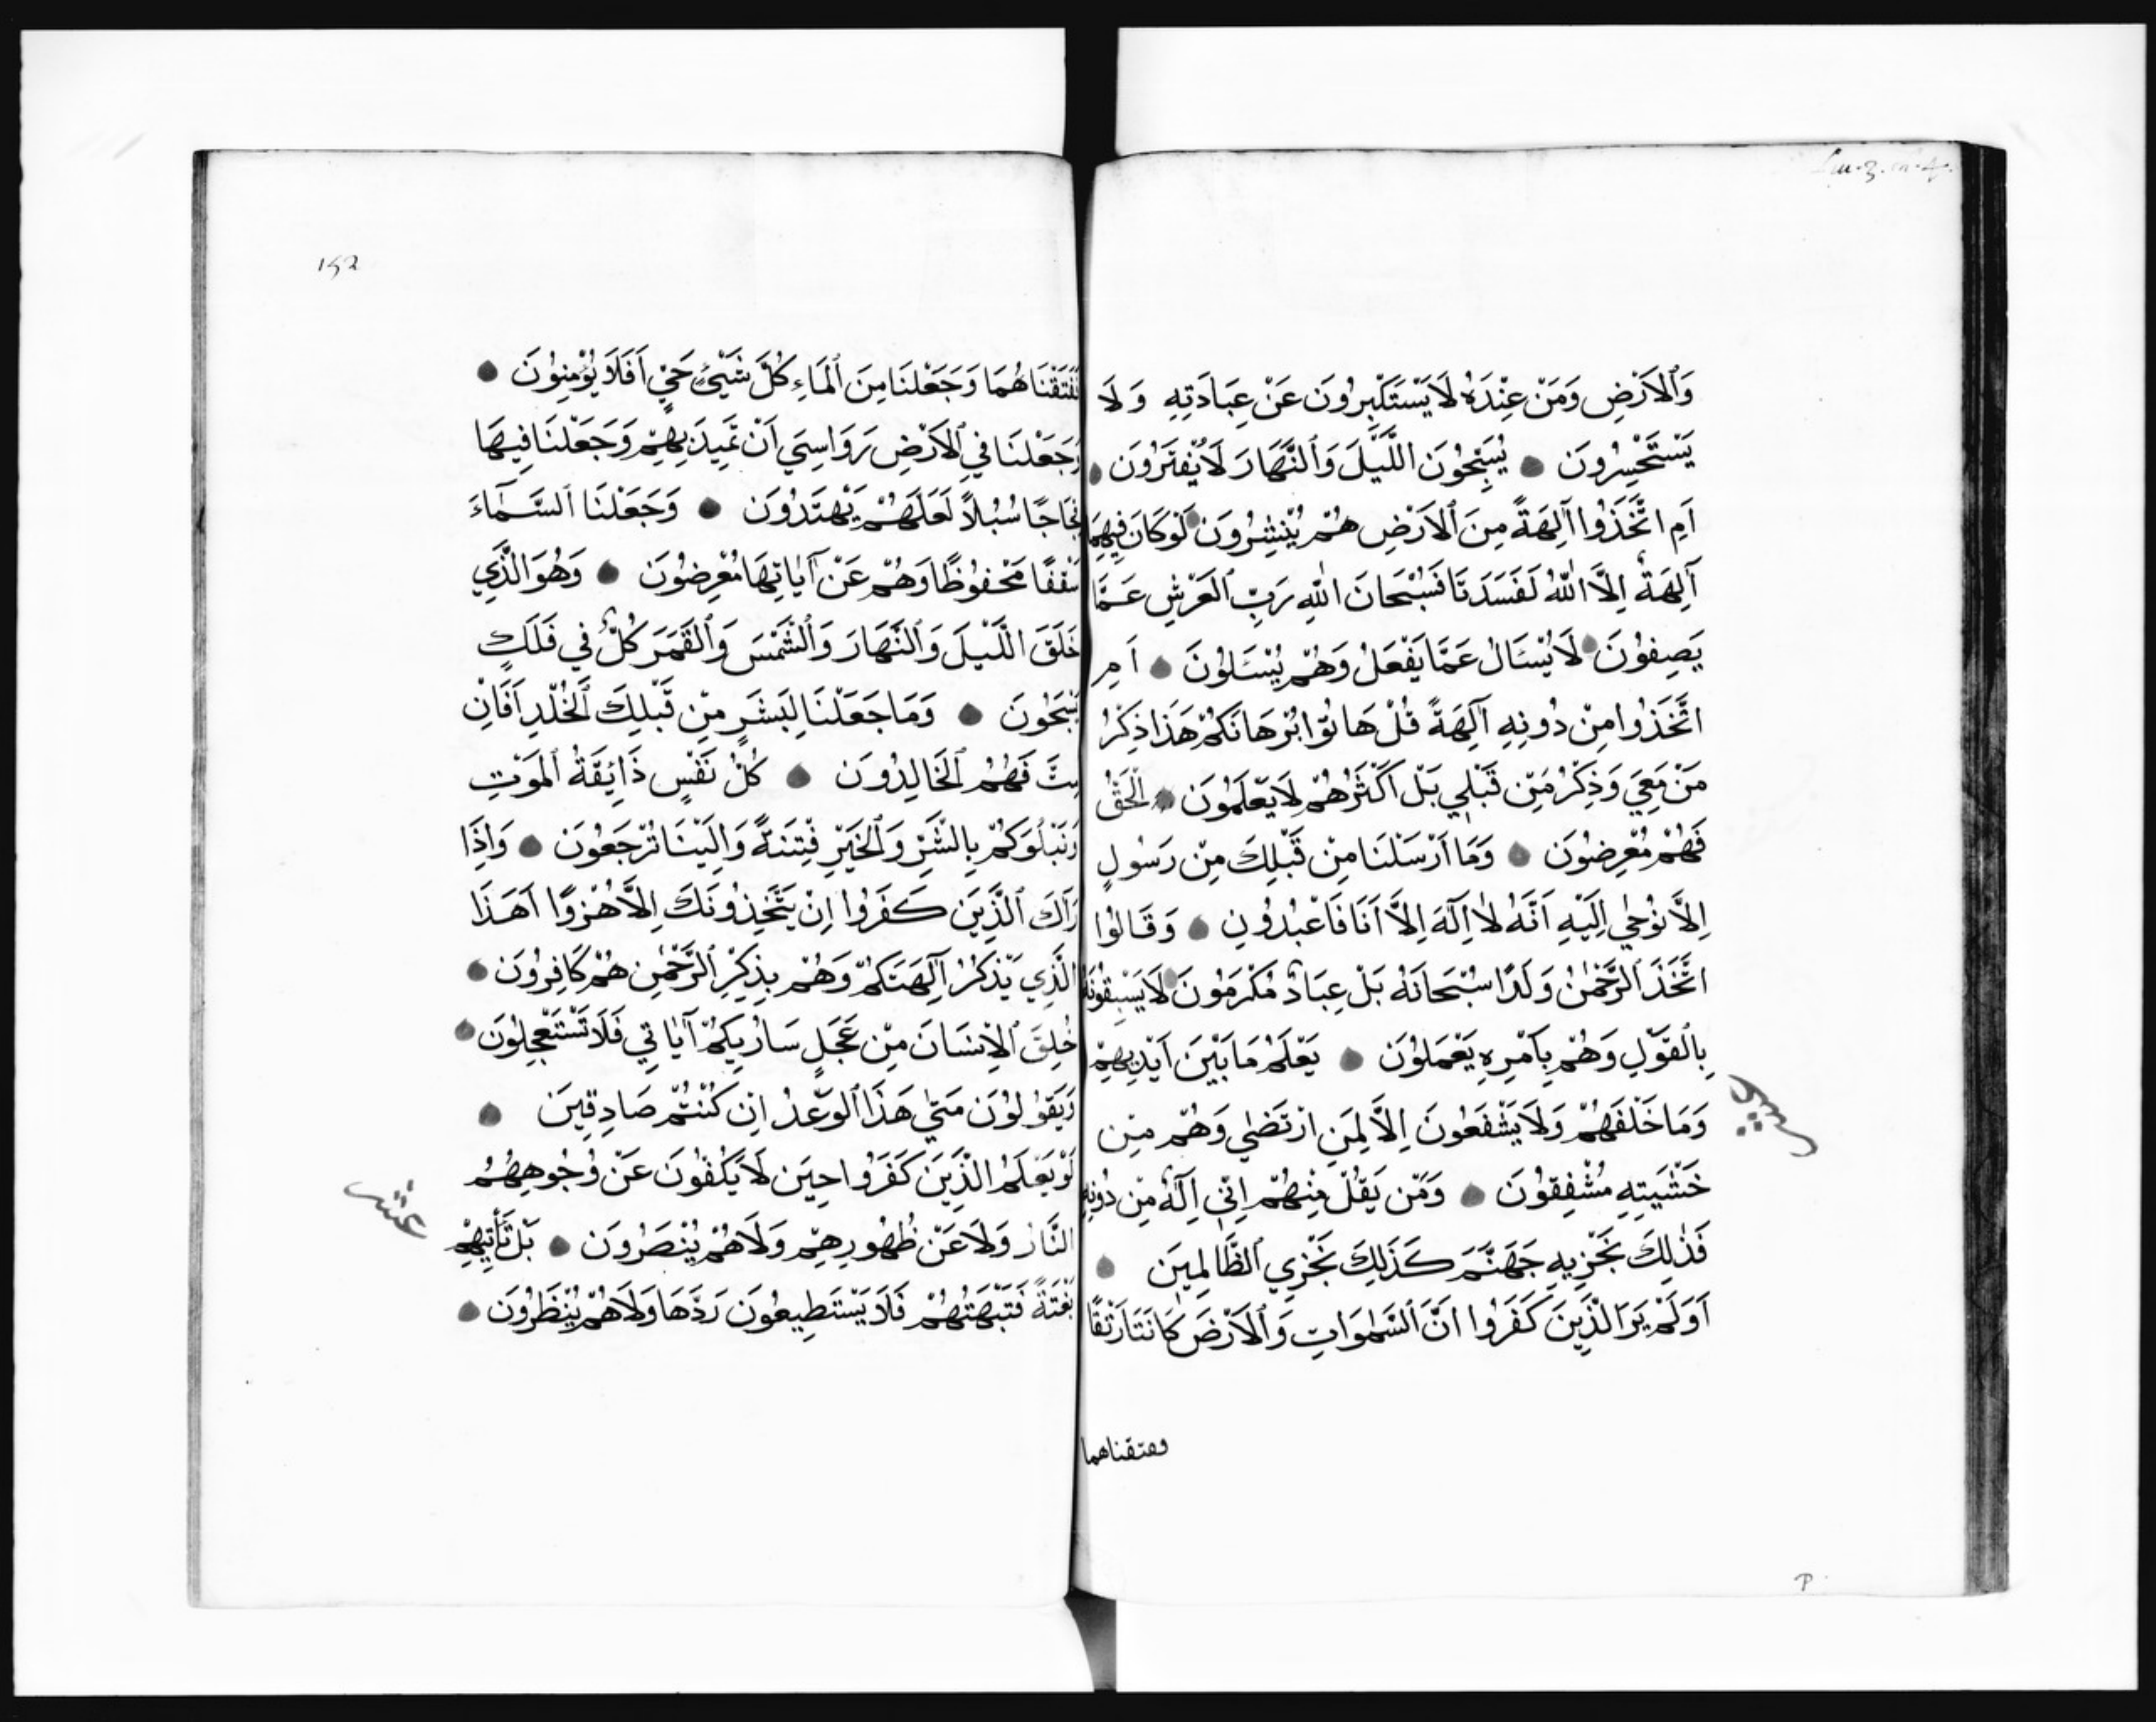 وَٱلاَرْضِ وَمَنْ عِنْدَهُ لَا يَسْتَكْبِرُونَ عَنْ عِبَادَتِهِ وَلَا
يَسْتَحْسِرُونَ يُسَبِّحُونَ اللَّيْلَ وَٱلنَّهَارَ لَا يُفْتَرُونَ
اَمِ اتَّخَذُوا آلِهَةً مِنَ ٱلاَرْضِ هُمْ يُنْشِرُونَ لَوْ كَانَ فِيهِمَا
آلِهَةٌ اِلَّا اللّٰهُ لَفَسَدَتَا فَسُبْحَانَ اللّٰهِ رَبِّ ٱلعَرْشِ عَمَّا
يَصِفُونَ لَا يُسْئَالُ عَمَّا يَفْعَلُ وَهُمْ يُسْئَلُونَ اَمِ
اتَّخَذُوا مِنْ دُونِهِ آلِهَةً قُلْ هَاتُوا بُرْهَانَكُمْ هَذَا ذِكْرُ
مَنْ مَعِيَ وَذِكْرُ مَنْ قَبْلِي بَلْ اَكْثَرُهُمْ لَا يَعْلَمُونَ الْحَقَّ
فَهُمْ مُعْرِضُونَ وَمَا اَرْسَلْنَا مِنْ قَبْلِكَ مِنْ رَسُولٍ
اِلَّا نُوحِي اِلَيْهِ اَنَّهُ لَا اِلَهَ اِلَّا اَنَا فَاعْبُدُونِ وَقَالُوا
اتَّخَذَ ٱلرَّحْمٰنُ وَلَدًا سُبْحَانَهُ بَلْ عِبَادٌ مُكْرَمُونَ لَا يَسْبِقُونَهُ
بِٱلْقَوْلِ وَهُمْ بِاَمْرِهِ يَعْمَلُونَ يَعْلَمُ مَا بَيْنَ اَيْدِيهِمْ
وَمَا خَلْفَهُمْ وَلَا يَشْفَعُونَ اِلَّا لِمَنِ ارْتَضٰي وَهُمْ مِنْ
خَشْيَتِهِ مُشْفِقُونَ وَمَن يَقُلْ مِنْهُمْ اِنِّي اِلَهٌ مِنْ دُونِهِ
فَذٰلِكَ نَجْزِيهِ جَهَنَّمَ كَذَلِكَ نَجْزِي ٱلظَّالِمِينَ
اَوَلَمْ يَرَ الَّذِينَ كَفَرُوا اَنَّ ٱلسَّمٰوَاتِ وَٱلاَرْضَ كَانَتَا رَتْقًا
ففتقناهما
١٥٢
فَفَتَقْنَاهُمَا وَجَعَلْنَا مِنَ ٱلمَاءِ كُلَّ شَيْئٍ حَيٍّ اَفَلَا يُؤْمِنُونَ
وَجَعَلْنَا فِي ٱلاَرْضِ رَوَاسِيَ اَنْ تَمِيدَ بِهِمْ وَجَعَلْنَا فِيهَا
فِجَاجًا سُبُلاً لَعَلَهُمْ يَهْتَدُونَ وَجَعَلْنَا ٱلسَّمَآءَ
سَقْفًا مَحْفُوظًا وَهُمْ عَنْ آيَاتِهَا مُعْرِضُونَ وَهُوَ الَّذِي
خَلَقَ اللَّيْلَ وَٱلنَّهَارَ وَٱلشَّمْسَ وَٱلقَمَرَ كُلٌّ فِي فَلَكٍ
يَسْبَحُونَ وَمَا جَعَلْنَا لِبَشَرٍ مِنْ قَبْلِكَ ٱلخُلْدَ اَفَاِنْ
مِتَّ فَهُمُ ٱلخَالِدُونَ كُلُّ نَفْسٍ ذَائِقَةُ ٱلمَوْتِ
وَنَبْلُوَكُمْ بِالشَّرِّ وَٱلخَيْرِ فِتْنَةً وَاِلَيْنَا تُرْجَعُونَ وَاِذَا
رَآكَ ٱلَّذِينَ كَفَرُوا اِنْ يَتَّخِذُونَكَ اِلَّا هُزُوًا اَهَذَا
الَّذِي يَذْكُرُ آلِهَتَكُمْ وَهُمْ بِذِكْرِ ٱلرَّحْمٰنِ هُمْ كَافِرُونَ
خُلِقَ ٱلاِنْسَانَ مِنْ عَجَلٍ سَاُرِيكُمْ آيَاتِي فَلَا تَسْتَعْجِلُونَ
وَيَقُولُوُنَ مَتَي هَذَا ٱلوَعْدُ اِنْ كُنْتُمْ صَادِقِينَ
لَوْ يَعْلَمُ الَّذِينَ كَفَرُوا حِينَ لَا يَكُفُّونَ عَنْ وُجُوهِهُمُ
النَّارَ وَلَا عَنْ ظُهُورِهِمْ وَلَا هُمْ يُنْصَرُونَ بَلْ تَأْتِيهِمْ
بَغْتَةً فَتَبْهَتُهُمْ فَلَا يَسْتَطِيعُونَ رَدَّهَا وَلَا هُمْ يُنْظَرُونَ
عشر